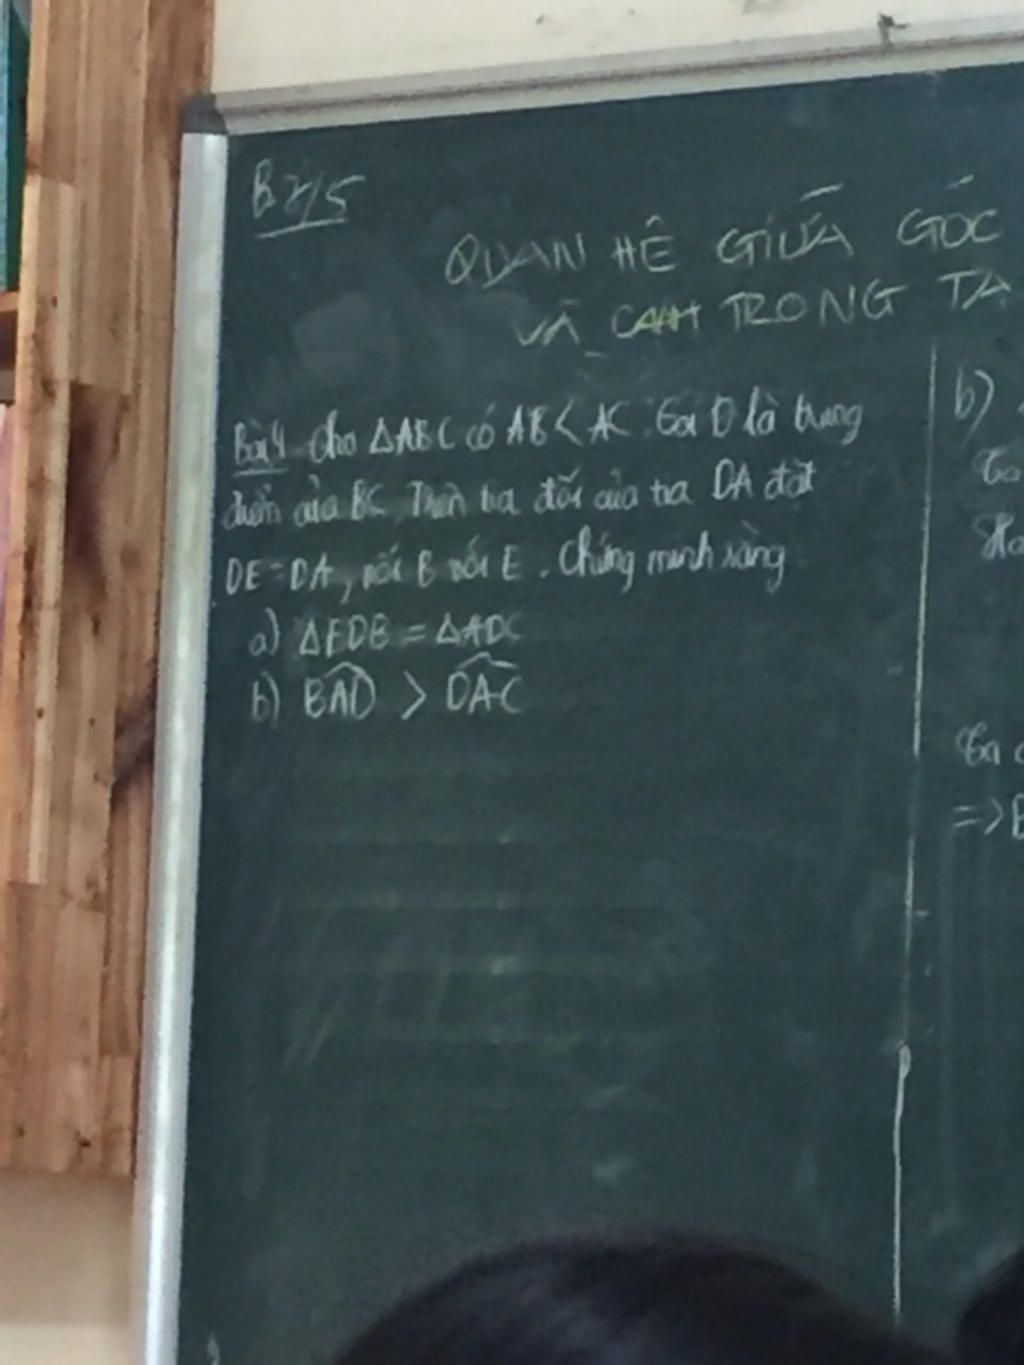 B 2/5
QUAN HÊ GIỮA GÓC
VÀ CẠNH TRONG TA
Bài 4 Cho ΔABC có AB < AC. Gọi D là trung
điểm của BC. Trên tia đối của tia DA đặt
DE = DA, nối B với E. Chứng minh rằng
a) ΔEDB = ΔADC
b) BAD > DAC
b)
Ta
Ta c
=> B